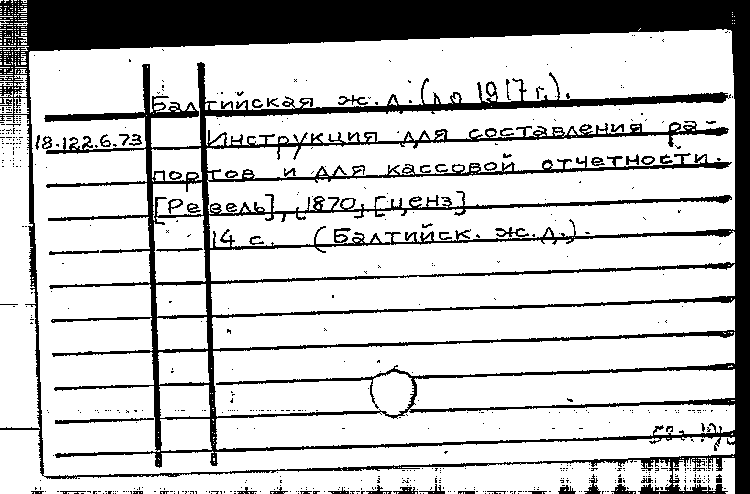 Балтийская ж. д. (до 1917 г.).
18.122.6.73 Инструкция для составления ра-
портов и для кассовой отчетности.
[Ревель], [1870, [ценз]
14 с. (Балтийск. ж. д.).